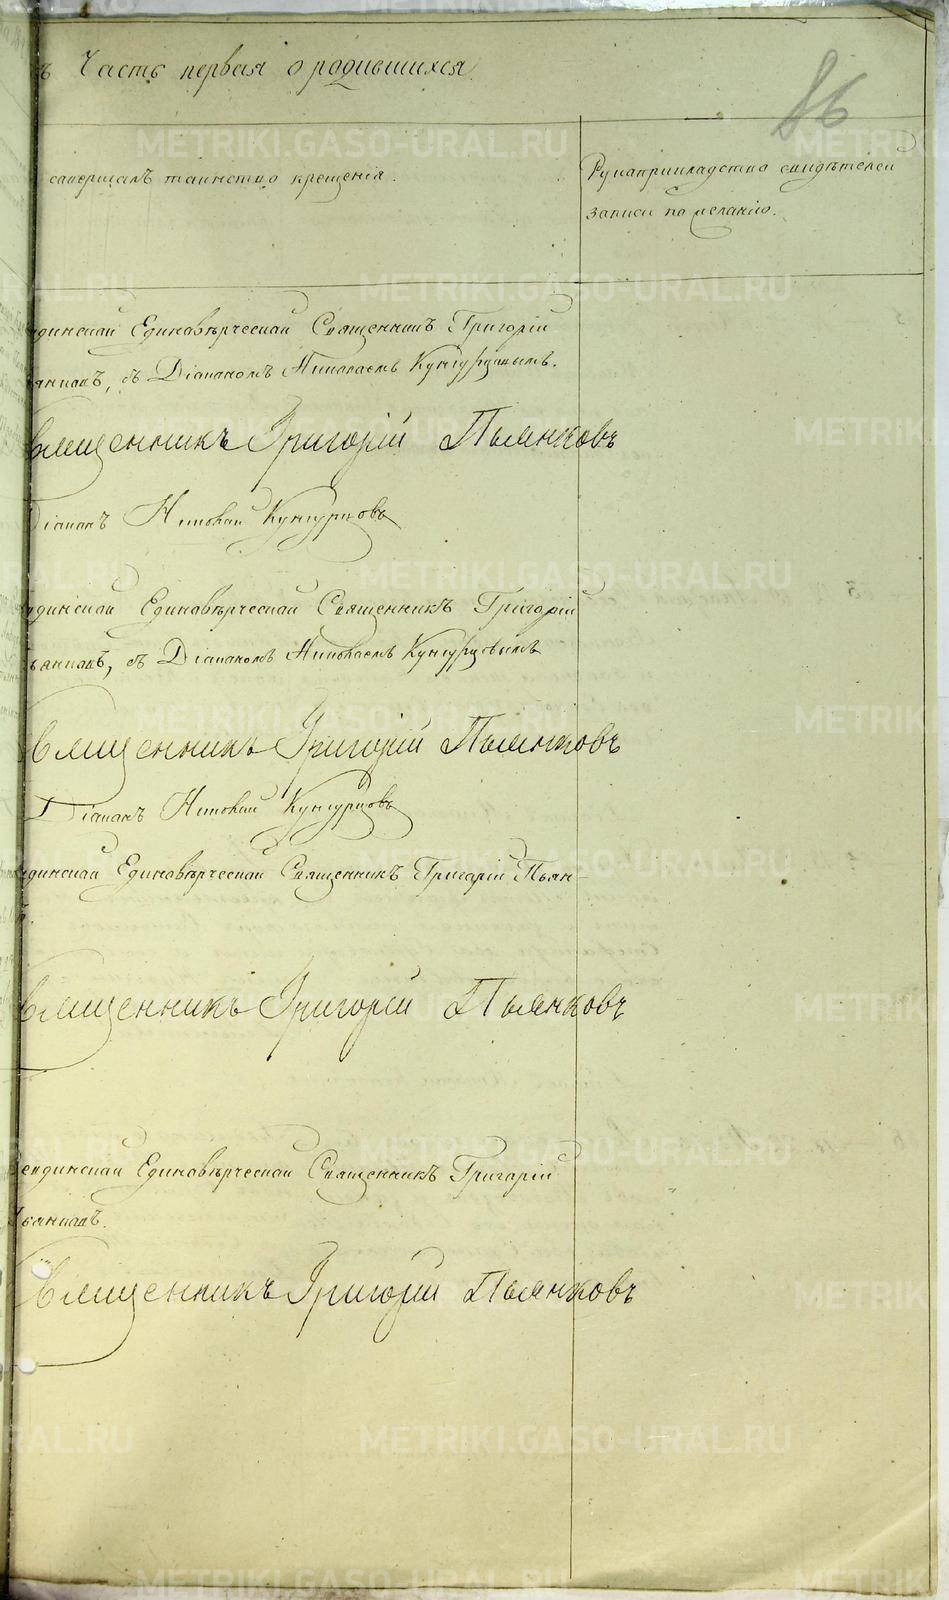 ъ Часть первая о родившихся.
86
совершалъ таинство крещенія.
Рукоприкладство свидѣтелей
записи по желанію.
Единовѣрческой Священникъ Григорій
съ Діакономъ Николаемъ Кунгурцовымъ.
Священникъ Григорій Пьянковъ
Діаконъ Николай Кунгурцовъ
Единовѣрческой Священникъ Григорій
съ Діакономъ Николаемъ Кунгурцовымъ
Священникъ Григорій Пьянковъ
Діаконъ Николай Кунгурцовъ
Единовѣрческой Священникъ Григорій Пьян-
Священникъ Григорій Пьянковъ
Единовѣрческой Священникъ Григорій
Священникъ Григорій Пьянковъ
METRIKI.GASO-URAL.RU